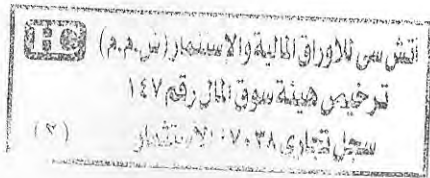 اتش سى للاوراق المالية والاستثمار (ش.م.م)
ترخيص هيئة سوق المال رقم ١٤٧
سجل تجارى ٠٧٠٣٨ الاستثمار
(٢)